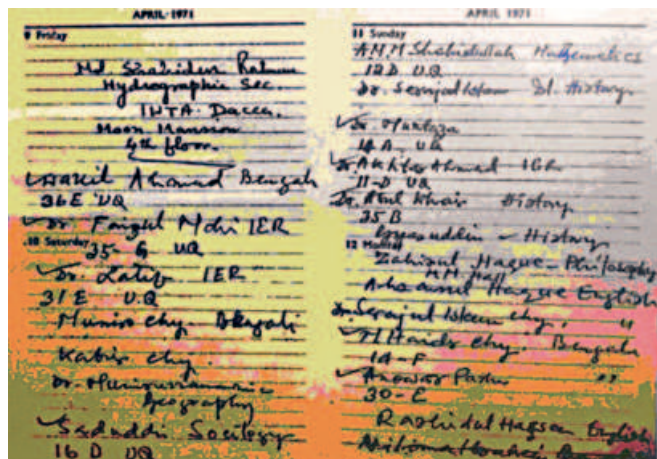 APRIL-1971
9 Friday
Md. Shahidur Rahman
Hydrographic Sec.
IWTA. Dacca.
Moon Mansion
4th floor.
Wakil Ahmad Bengali
36 E UQ
Dr. Faizul Mohi IER
10 Saturday
35-G UQ
Dr. Latif IER
31 E UQ
Munir chy Bengali
Kabir chy.
Dr. Geography
Saduddin Sociology
16 D UQ
APRIL 1971
11 Sunday
A.M.M Shahidullah Mathematics
12 D UQ
Dr. Serajul Islam Isl. History
Dr. Murtaza
14 A UQ
Dr. Akhtar Ahmad IER
11-D UQ
Dr. Abul Khair History
35 B
Gyasuddin - History
12 Monday
Zahirul Haque - Philosophy
MM Hall
Ahsanul Haque English
Dr. Serajul Islam chy. "
M Haider chy. Bengali
14-F
Anowar Pasha "
30-E
Rashidul Hassan English